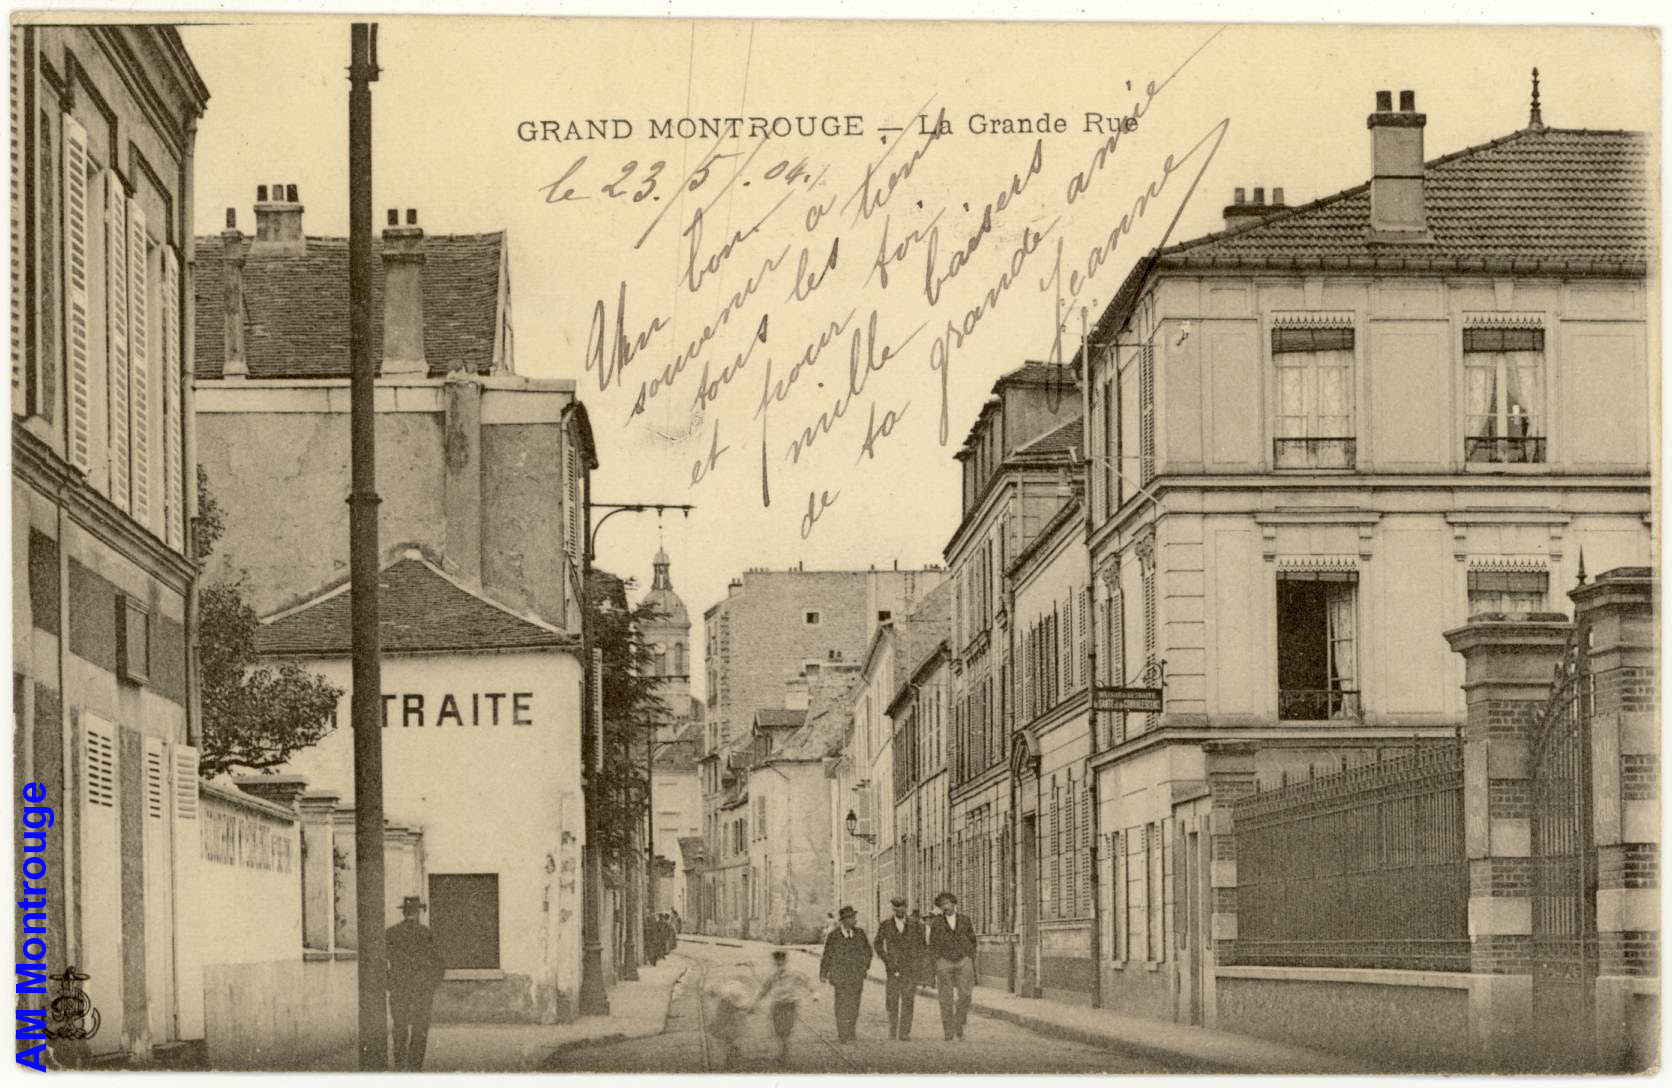 GRAND MONTROUGE — La Grande Rue
le 23/5/04.
Un bon
souvenir à
tous les tiens
et pour toi
mille baisers
de ta grande amie
Jeanne
TRAITE
MAISON DE RETRAITE
DE SANTÉ et de CONVALESCENCE
AM Montrouge